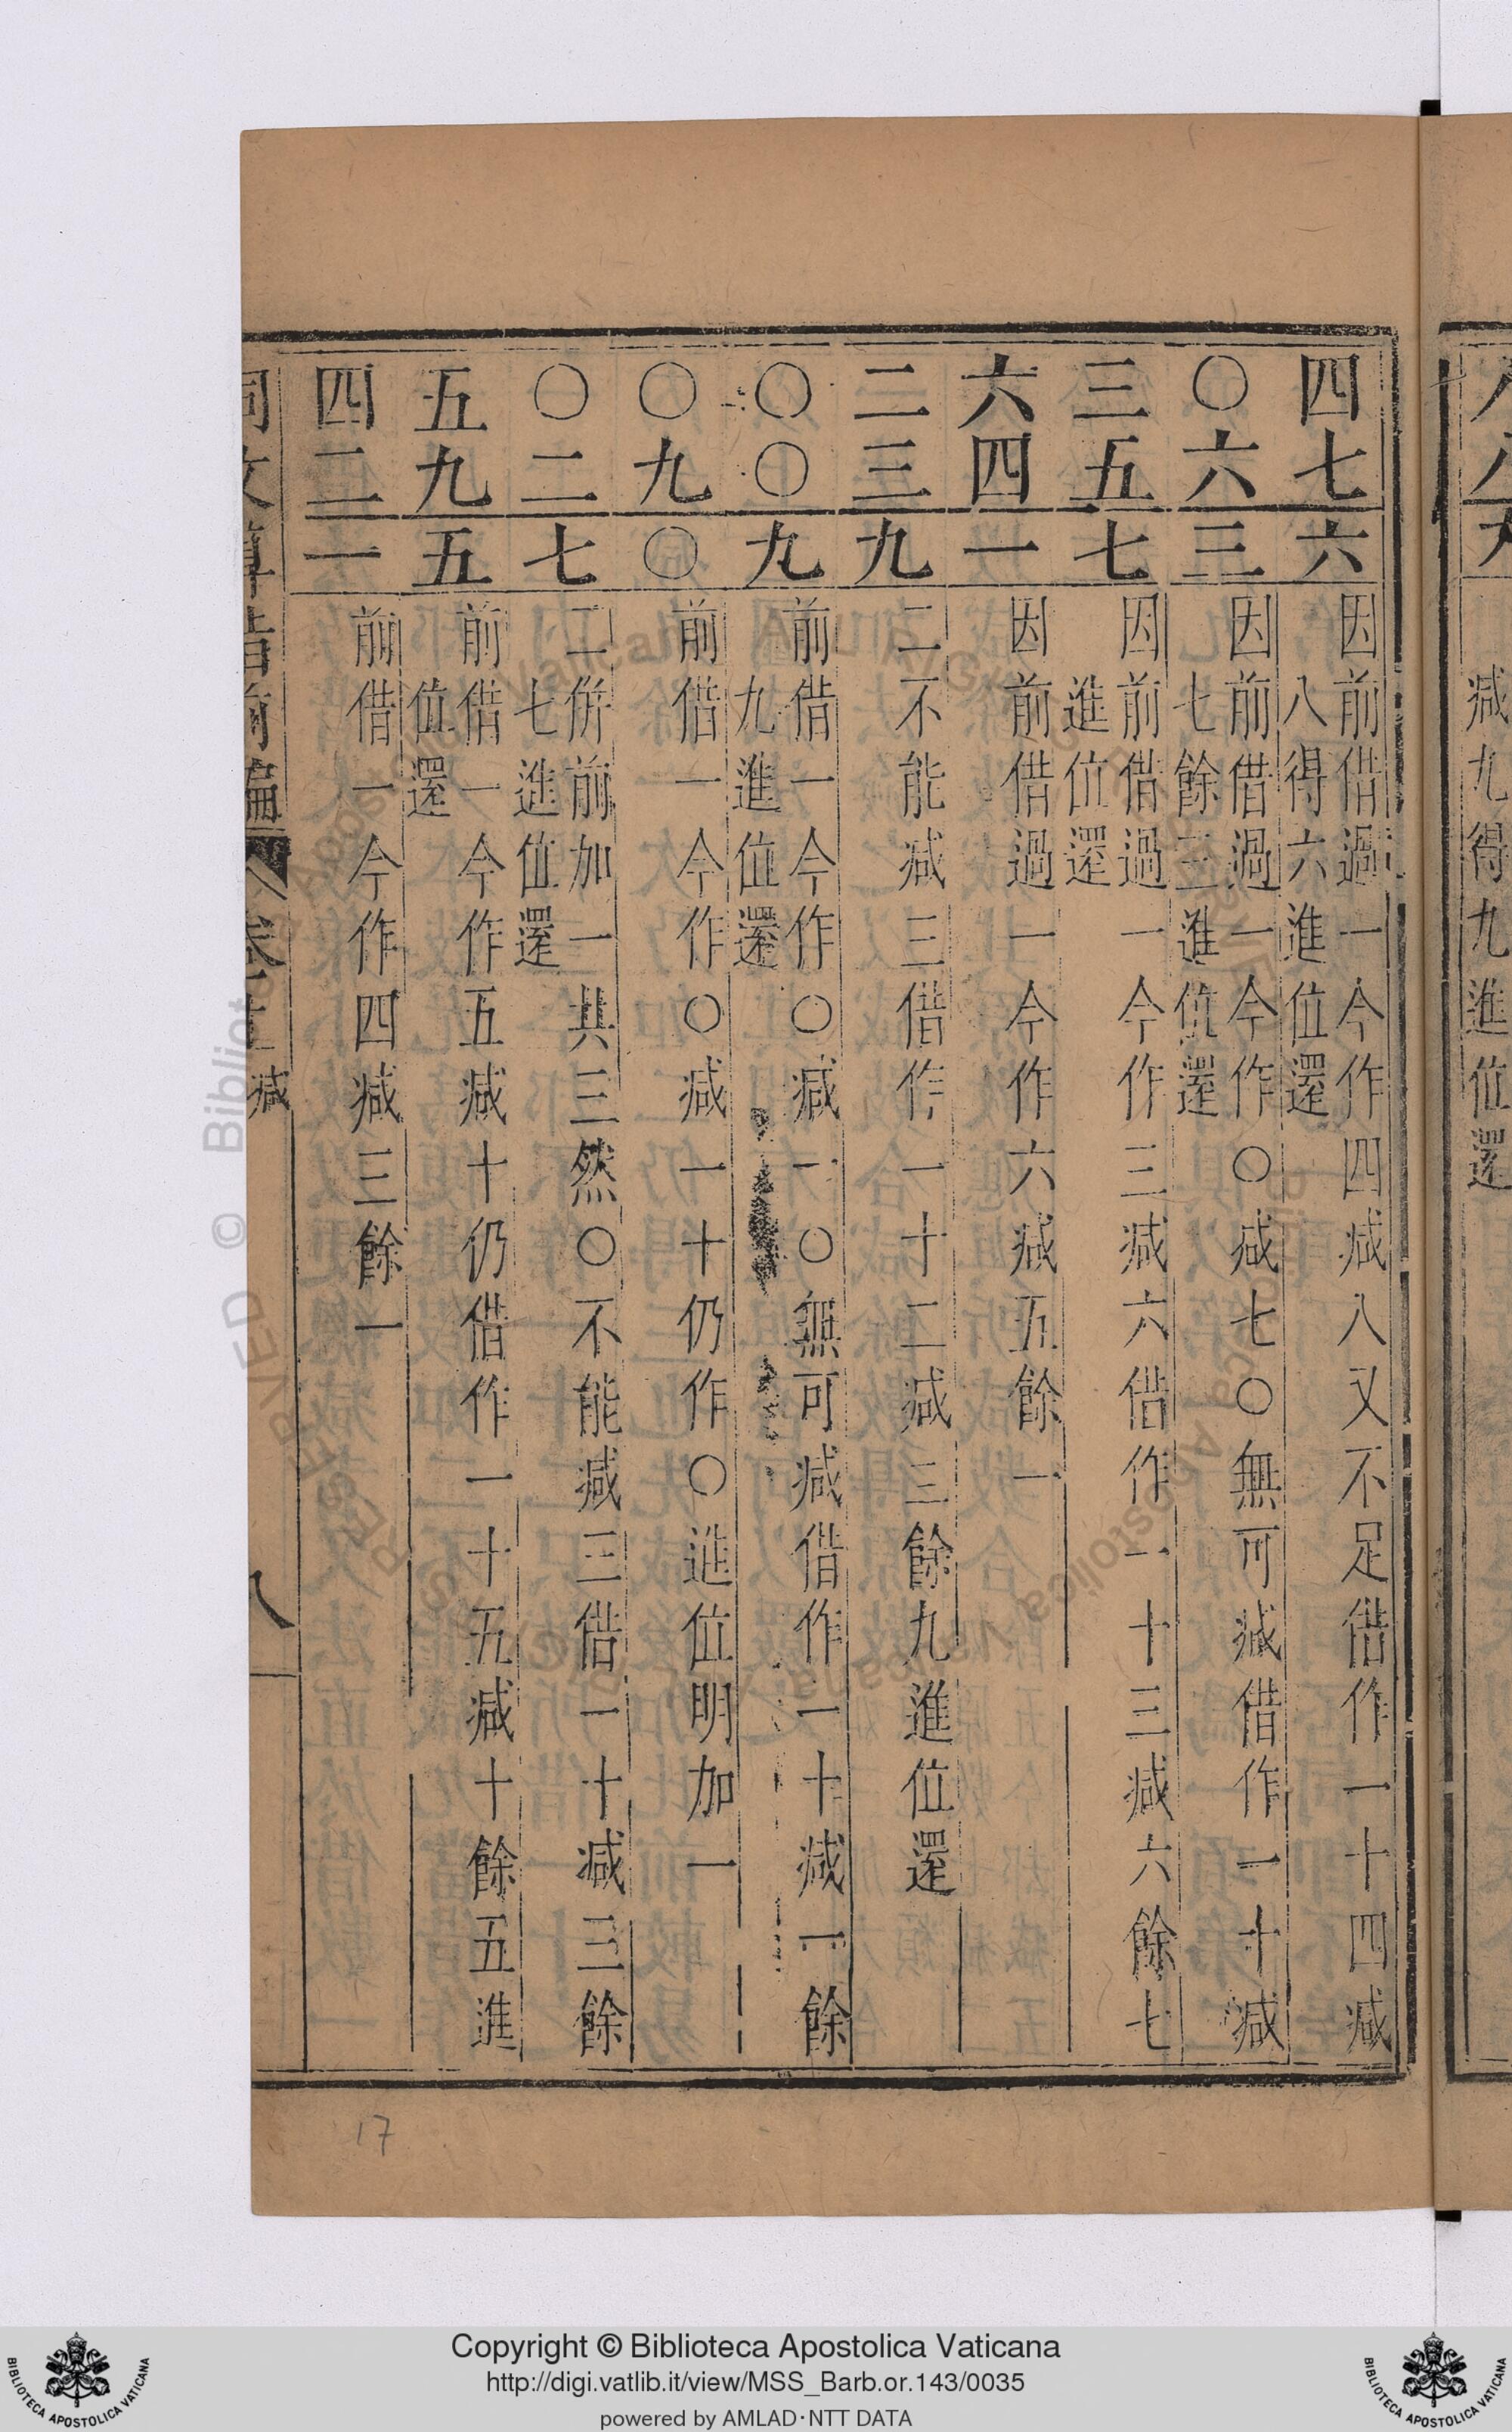 減九得九進位還
四七六
因前借過一今作四減八又不足借作一十四減
八得六進位還
〇六三
因前借過一今作〇減七〇無可減借作一十減
七餘三進位還
三五七
因前借過一今作三減六借作一十三減六餘七
進位還
六四一
因前借過一今作六減五餘一
二三九
二不能減三借作一十二減三餘九進位還
〇〇九
前借一今作〇減一〇無可減借作一十減一餘
九進位還
〇九〇
前借一今作〇減一十仍作〇進位明加一
〇二七
二併前加一共三然〇不能減三借一十減三餘
七進位還
五九五
前借一今作五減十仍借作一十五減十餘五進
位還
四二一
前借一今作四減三餘一
減
八
17
© Biblioteca Apostolica Vaticana
Copyright © Biblioteca Apostolica Vaticana
http://digi.vatlib.it/view/MSS_Barb.or.143/0035
powered by AMLAD·NTT DATA
BIBLIOTECA APOSTOLICA VATICANA
BIBLIOTECA APOSTOLICA VATICANA